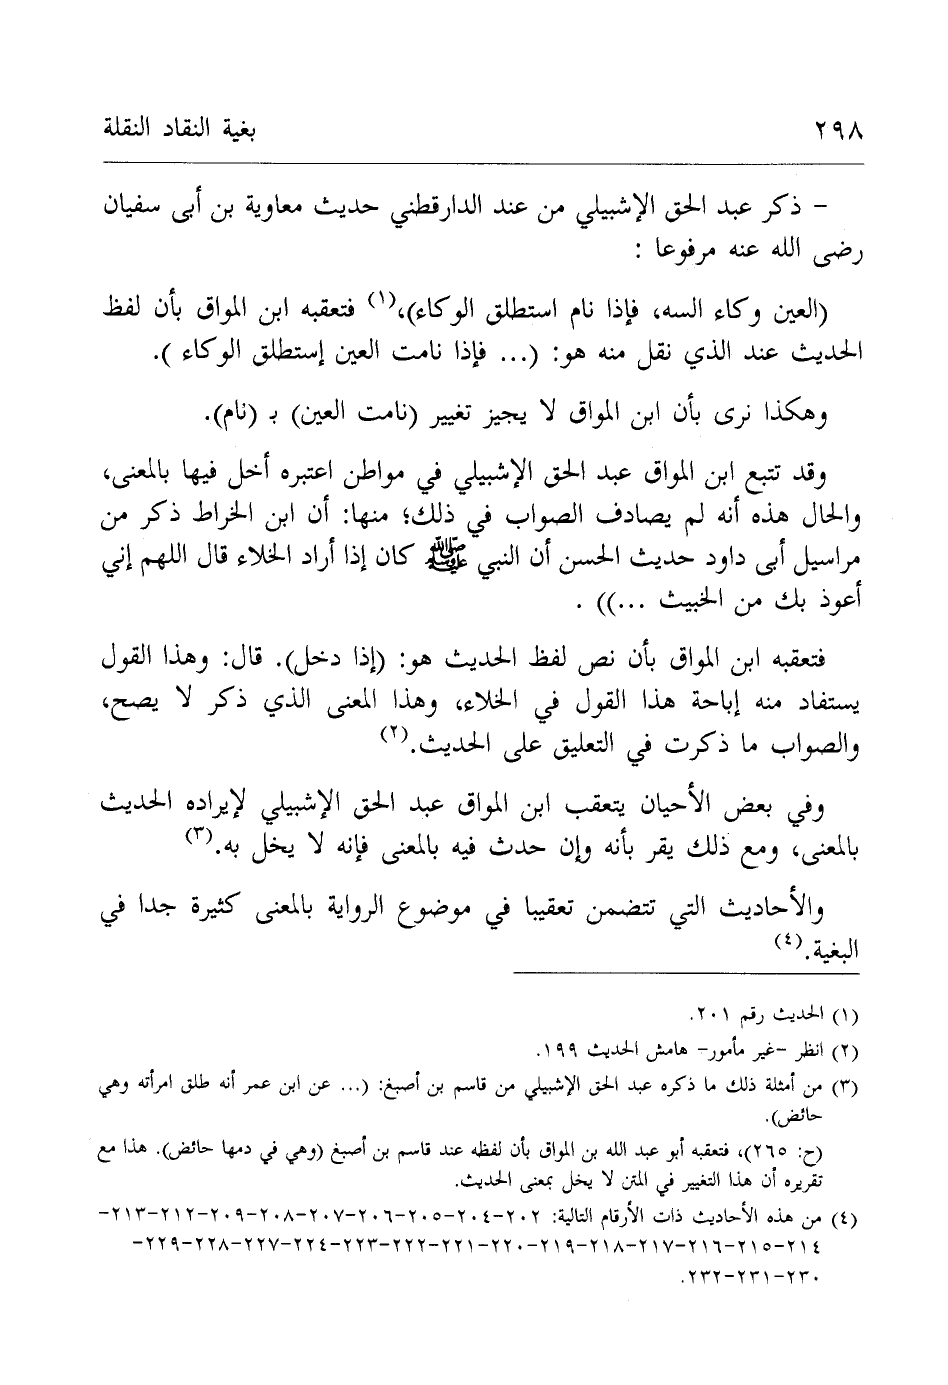 ٢٩٨ بغية النقاد النقلة
- ذكر عبد الحق الإشبيلي من عند الدارقطني حديث معاوية بن أبى سفيان
رضى الله عنه مرفوعا :
(العين وكاء السه، فإذا نام استطلق الوكاء)،(١) فتعقبه ابن المواق بأن لفظ
الحديث عند الذي نقل منه هو: (... فإذا نامت العين إستطلق الوكاء ).
وهكذا نرى بأن ابن المواق لا يجيز تغيير (نامت العين) بـ (نام).
وقد تتبع ابن المواق عبد الحق الإشبيلي في مواطن اعتبره أخل فيها بالمعنى،
والحال هذه أنه لم يصادف الصواب في ذلك؛ منها: أن ابن الخراط ذكر من
مراسيل أبى داود حديث الحسن أن النبي ﷺ كان إذا أراد الخلاء قال اللهم إني
أعوذ بك من الخبيث ...)) .
فتعقبه ابن المواق بأن نص لفظ الحديث هو: (إذا دخل). قال: وهذا القول
يستفاد منه إباحة هذا القول في الخلاء، وهذا المعنى الذي ذكر لا يصح،
والصواب ما ذكرت في التعليق على الحديث.(٢)
وفي بعض الأحيان يتعقب ابن المواق عبد الحق الإشبيلي لإيراده الحديث
بالمعنى، ومع ذلك يقر بأنه وإن حدث فيه بالمعنى فإنه لا يخل به.(٣)
والأحاديث التي تتضمن تعقيبا في موضوع الرواية بالمعنى كثيرة جدا في
البغية.(٤)
(١) الحديث رقم ٢٠١.
(٢) انظر -غير مأمور- هامش الحديث ١٩٩.
(٣) من أمثلة ذلك ما ذكره عبد الحق الإشبيلي من قاسم بن أصبغ: (... عن ابن عمر أنه طلق امرأته وهي
حائض).
(ح: ٢٦٥)، فتعقبه أبو عبد الله بن المواق بأن لفظه عند قاسم بن أصبغ (وهي في دمها حائض). هذا مع
تقريره أن هذا التغيير في المتن لا يخل بمعنى الحديث.
(٤) من هذه الأحاديث ذات الأرقام التالية: ٢٠٢-٢٠٤-٢٠٥-٢٠٦-٢٠٧-٢٠٨-٢٠٩-٢١٢-٢١٣-
٢١٤-٢١٥-٢١٦-٢١٧-٢١٨-٢١٩-٢٢٠-٢٢١-٢٢٢-٢٢٣-٢٢٤-٢٢٧-٢٢٨-٢٢٩-
٢٣٠-٢٣١-٢٣٢.